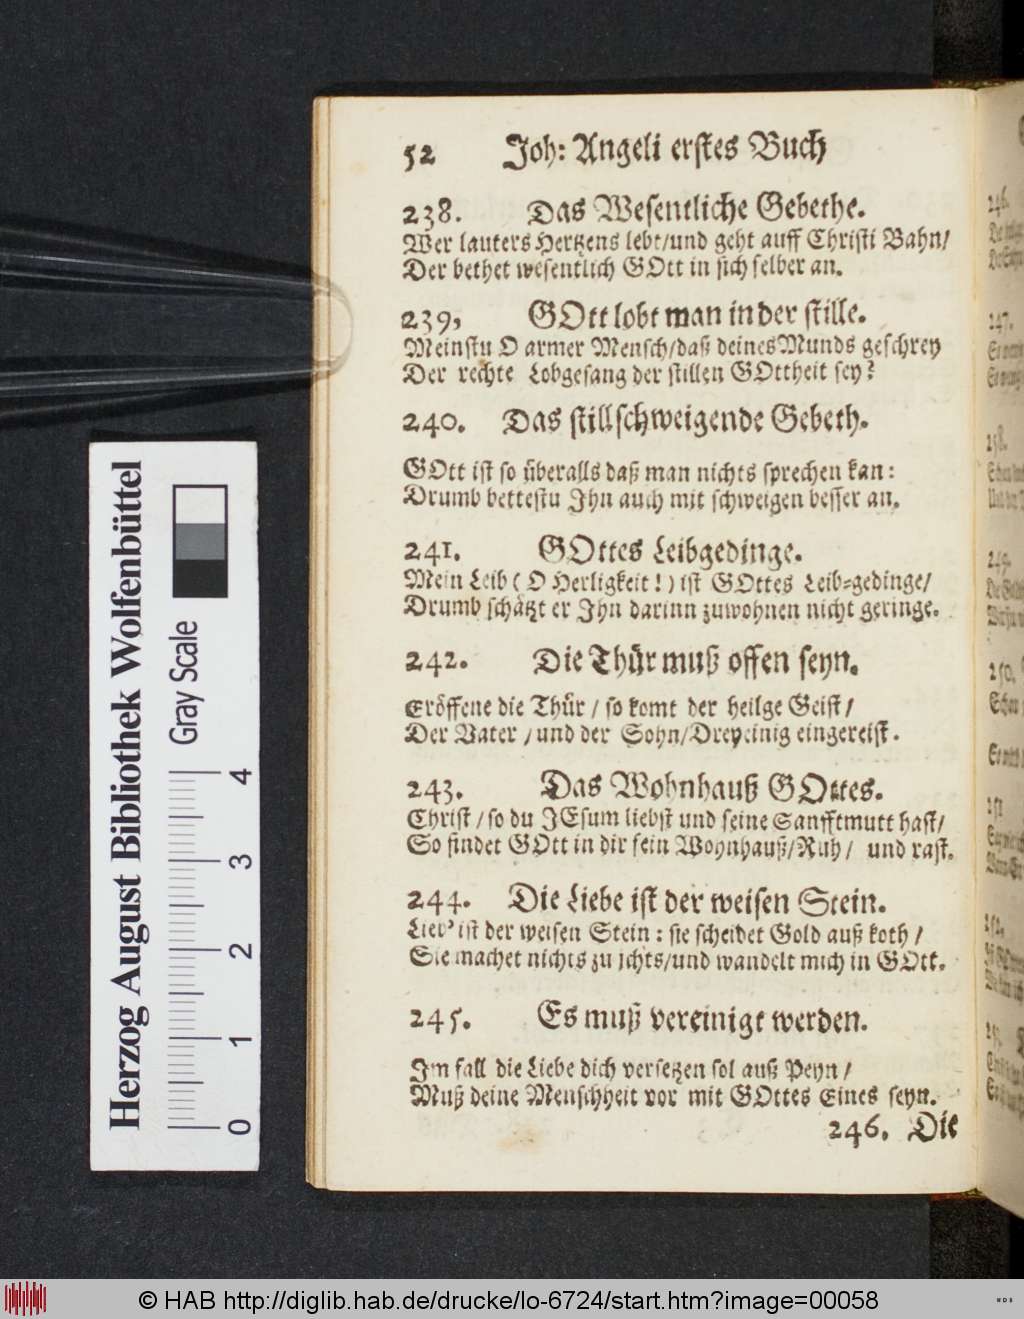 52 Joh: Angeli erstes Buch
238. Das Wesentliche Gebethe.
Wer lauters Hertzens lebt/und geht auff Christi Bahn/
Der bethet wesentlich GOtt in sich selber an.
239, GOtt lobt man in der stille.
Meinstu O armer Mensch/daß deines Munds geschrey
Der rechte Lobgesang der stillen GOttheit sey?
240. Das stillschweigende Gebeth.
GOtt ist so überalls daß man nichts sprechen kan:
Drumb bettestu Jhn auch mit schweigen besser an.
241. GOttes Leibgedinge.
Mein Leib ( O Herligkeit! ) ist GOttes Leib=gedinge/
Drumb schätzt er Jhn darinn zuwohnen nicht geringe.
242. Die Thür muß offen seyn.
Eröffene die Thür / so komt der heilge Geist /
Der Vater / und der Sohn/Dreyeinig eingereist.
243. Das Wohnhauß GOttes.
Christ / so du JEsum liebst und seine Sanfftmutt hast/
So findet GOtt in dir sein Wohnhauß/Ruh / und rast.
244. Die Liebe ist der weisen Stein.
Lieb' ist der weisen Stein: sie scheidet Gold auß koth /
Sie machet nichts zu jchts/und wandelt mich in GOtt.
245. Es muß vereinigt werden.
Jm fall die Liebe dich versetzen sol auß Peyn /
Muß deine Menschheit vor mit GOttes Eines seyn.
246. Die
Herzog August Bibliothek Wolfenbüttel
Gray Scale
0 1 2 3 4
© HAB http://diglib.hab.de/drucke/lo-6724/start.htm?image=00058